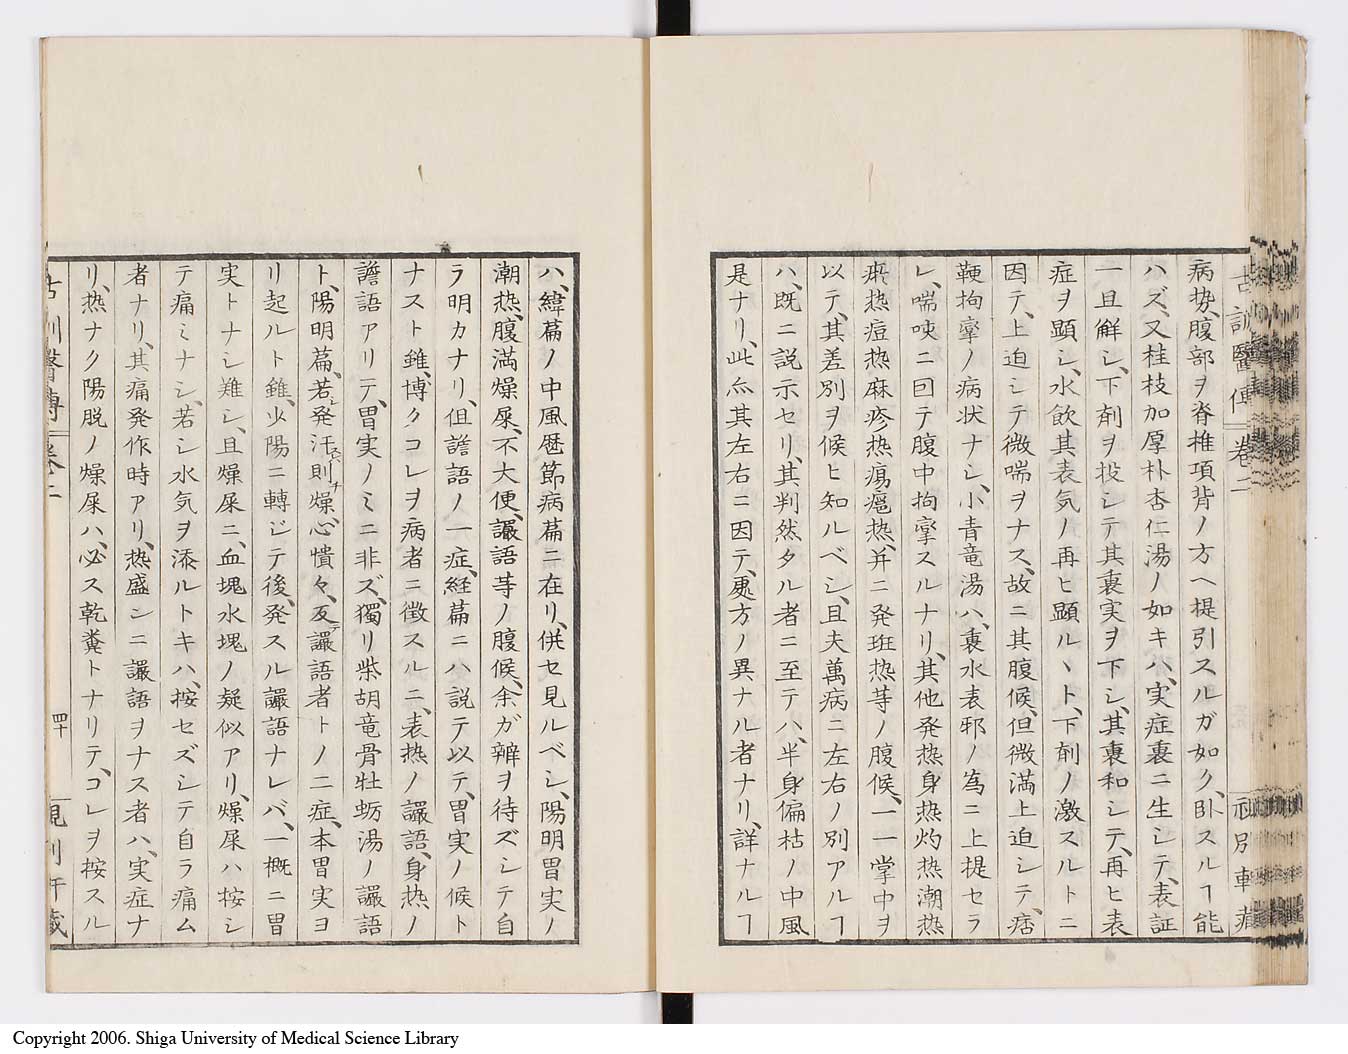 古訓醫傳 卷二
病势、腹部ヲ脊椎項背ノ方ヘ提引スルガ如ク、卧スルヿ能
ハズ、又桂枝加厚朴杏仁湯ノ如キハ、実症裏ニ生シテ、表証
一旦觧シ、下剤ヲ投シテ其裏実ヲ下シ、其裏和シテ、再ヒ表
症ヲ顕シ、水飲其表気ノ再ヒ顕ルヽト、下剤ノ激スルトニ
因テ、上迫シテ微喘ヲナス、故ニ其腹候、但微満上迫シテ、痞
鞕拘攣ノ病状ナシ、小青竜湯ハ、裏水表邪ノ為ニ上提セラ
レ、喘咳ニ因テ腹中拘攣スルナリ、其他発熱身熱灼熱潮熱
痳热痘热麻疹热瘍瘟热、并ニ発斑热等ノ腹候、一一掌中ヲ
以テ、其差別ヲ候ヒ知ルベシ、且夫萬病ニ左右ノ別アルヿ
ハ、既ニ説示セリ、其判然タル者ニ至テハ、半身偏枯ノ中風
是ナリ、此亦其左右ニ因テ、処方ノ異ナル者ナリ、詳ナルヿ
ハ、緯篇ノ中風歴節病篇ニ在リ、併セ見ルベシ、陽明胃実ノ
潮热、腹満燥屎、不大便、讝語等ノ腹候、余ガ辨ヲ待ズシテ自
ラ明カナリ、但譫語ノ一症、経篇ニハ説テ以テ、胃実ノ候ト
ナスト雖、博クコレヲ病者ニ徴スルニ、表热ノ讝語、身热ノ
譫語アリテ、胃実ノミニ非ズ、獨リ柴胡竜骨牡蛎湯ノ讝語
ト、陽明篇、若シ発汗則燥、心憒々、反テ讝語者トノ二症、本胃実ヨ
リ起ルト雖、少陽ニ轉ジテ後、発スル讝語ナレバ、一概ニ胃
実トナシ難シ、且燥屎ニ、血塊水塊ノ疑似アリ、燥屎ハ按シ
テ痛ミナシ、若シ水気ヲ添ルトキハ、按セズシテ自ラ痛ム
者ナリ、其痛発作時アリ、热盛ンニ讝語ヲナス者ハ、実症ナ
リ、热ナク陽脱ノ燥屎ハ、必ス乾糞トナリテ、コレヲ按スル
四十
Copyright 2006. Shiga University of Medical Science Library